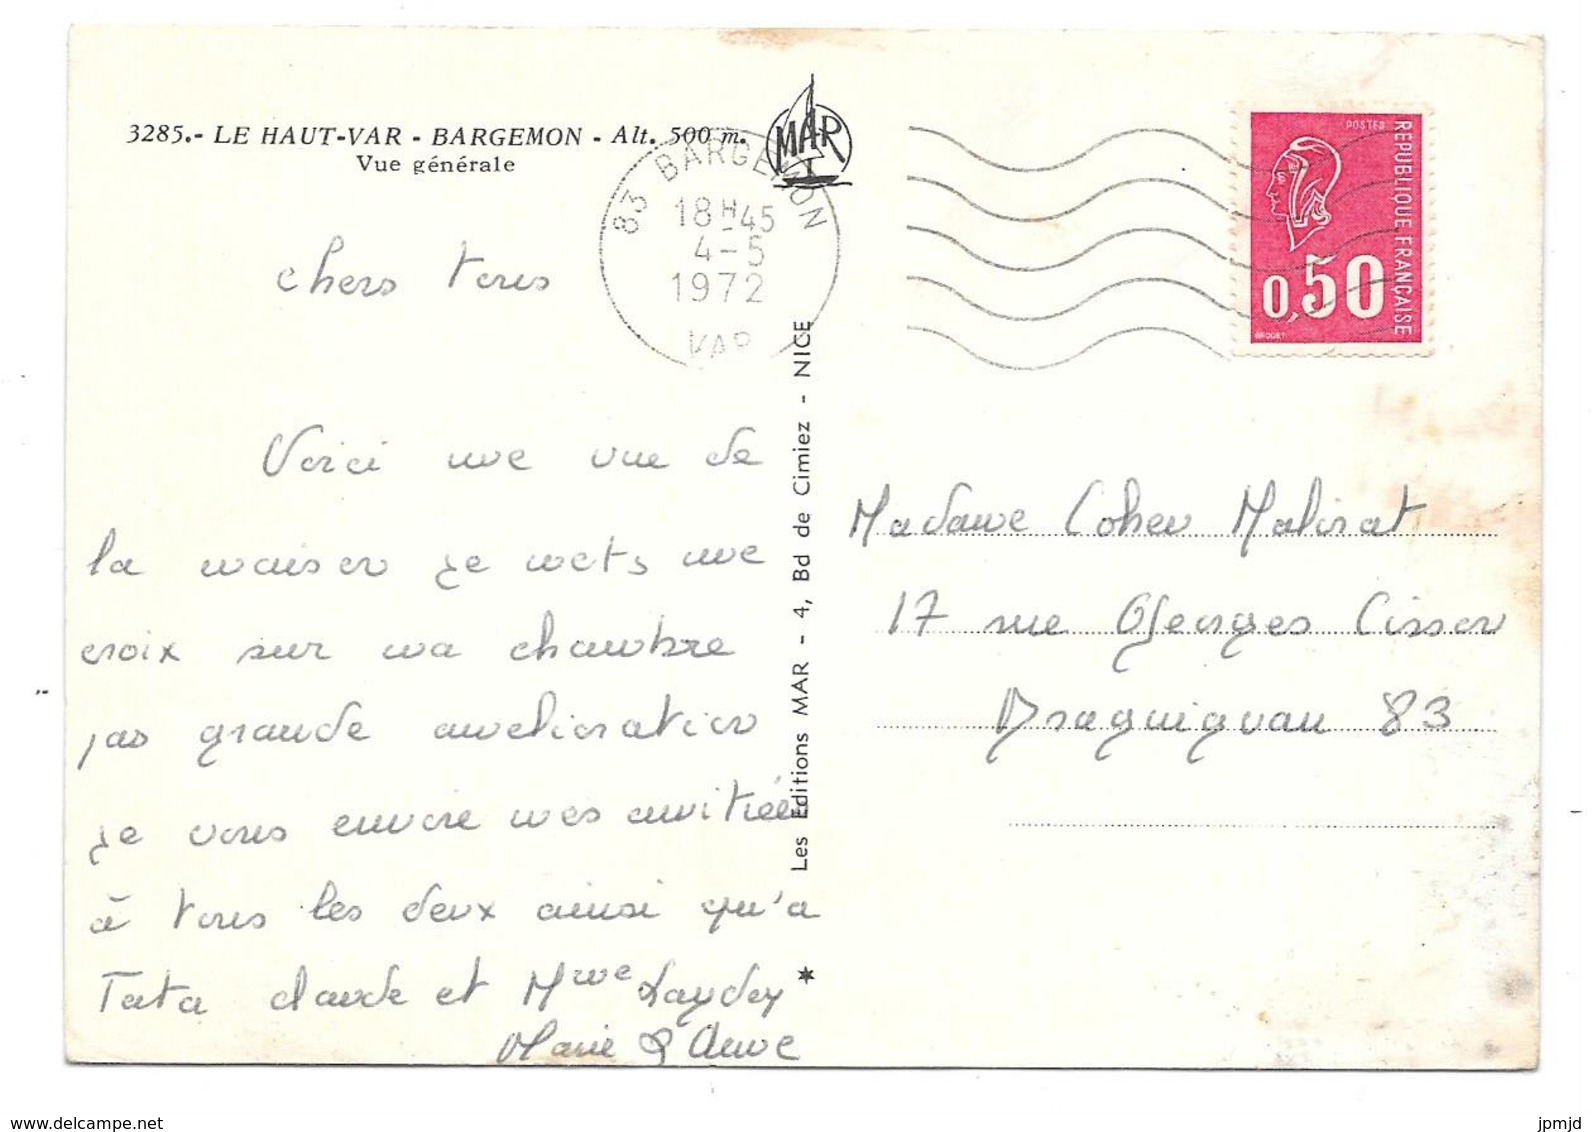 3285.- LE HAUT-VAR - BARGEMON - Alt. 500 m.
Vue générale
MAR
83 BARGEMON
18H45
4-5
1972
VAR
POSTES
REPUBLIQUE FRANÇAISE
0,50
chers tous
Voici une vue de
la maison je mets une
croix sur ma chambre
pas grande amelioration
je vous envoie mes amitiées
à tous les deux ainsi qu'a
Tata claude et Mme
Marie Anne
Les Editions MAR - 4, Bd de Cimiez - NICE
Madame Cohen Malinat
17 rue Georges Cisson
Draguignan 83
delcampe.net
jpmjd